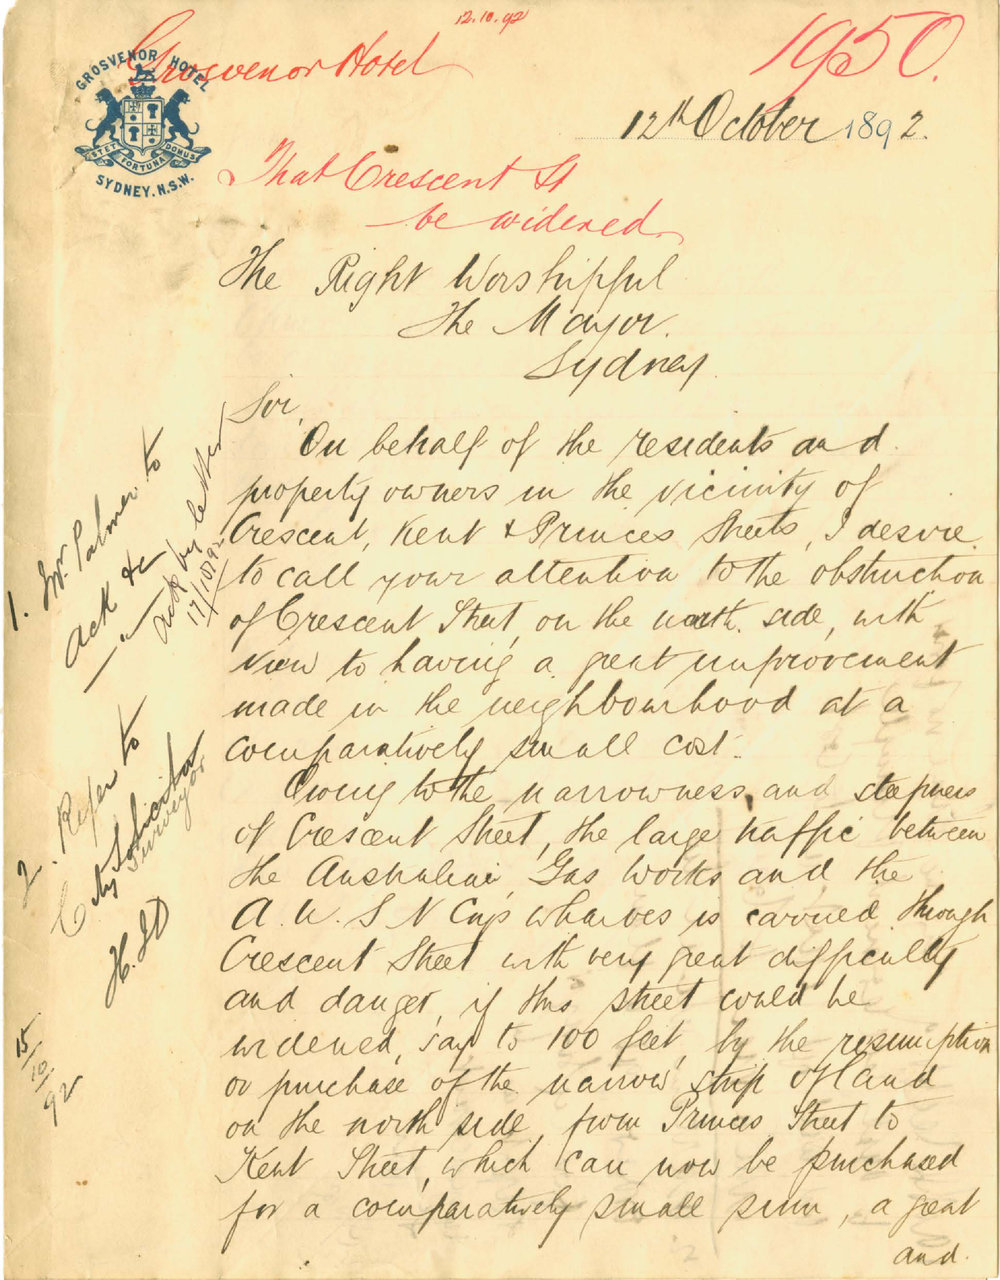 12.10.92
Grosvenor Hotel
1950.
GROSVENOR HOTEL
STET FORTUNA DOMUS
SYDNEY. N.S.W.
12th October 1892.
That Crescent St
be widened
The Right Worshipful
The Mayor.
Sydney.
Sir,
On behalf of the residents and
property owners in the vicinity of
Crescent, Kent & Princes Streets, I desire
to call your attention to the obstruction
of Crescent Street, on the north side, with
view to having a great improvement
made in the neighbourhood at a
comparatively small cost.
Owing to the narrowness, and steepness
of Crescent Street, the large traffic between
the Australian Gas Works and the
A. U. S N Coy's wharves is carried through
Crescent Street with very great difficulty
and danger, if this street could be
widened, say to 100 feet, by the resumption
or purchase of the narrow strip of land
on the north side, from Princes Street to
Kent Street, which can now be purchased
for a comparatively small sum, a great
and.
1. Mr. Palmer to
ack &c
ack by letter
17/10/92
2. Refer to
City Solicitor
Surveyor
15/10/92